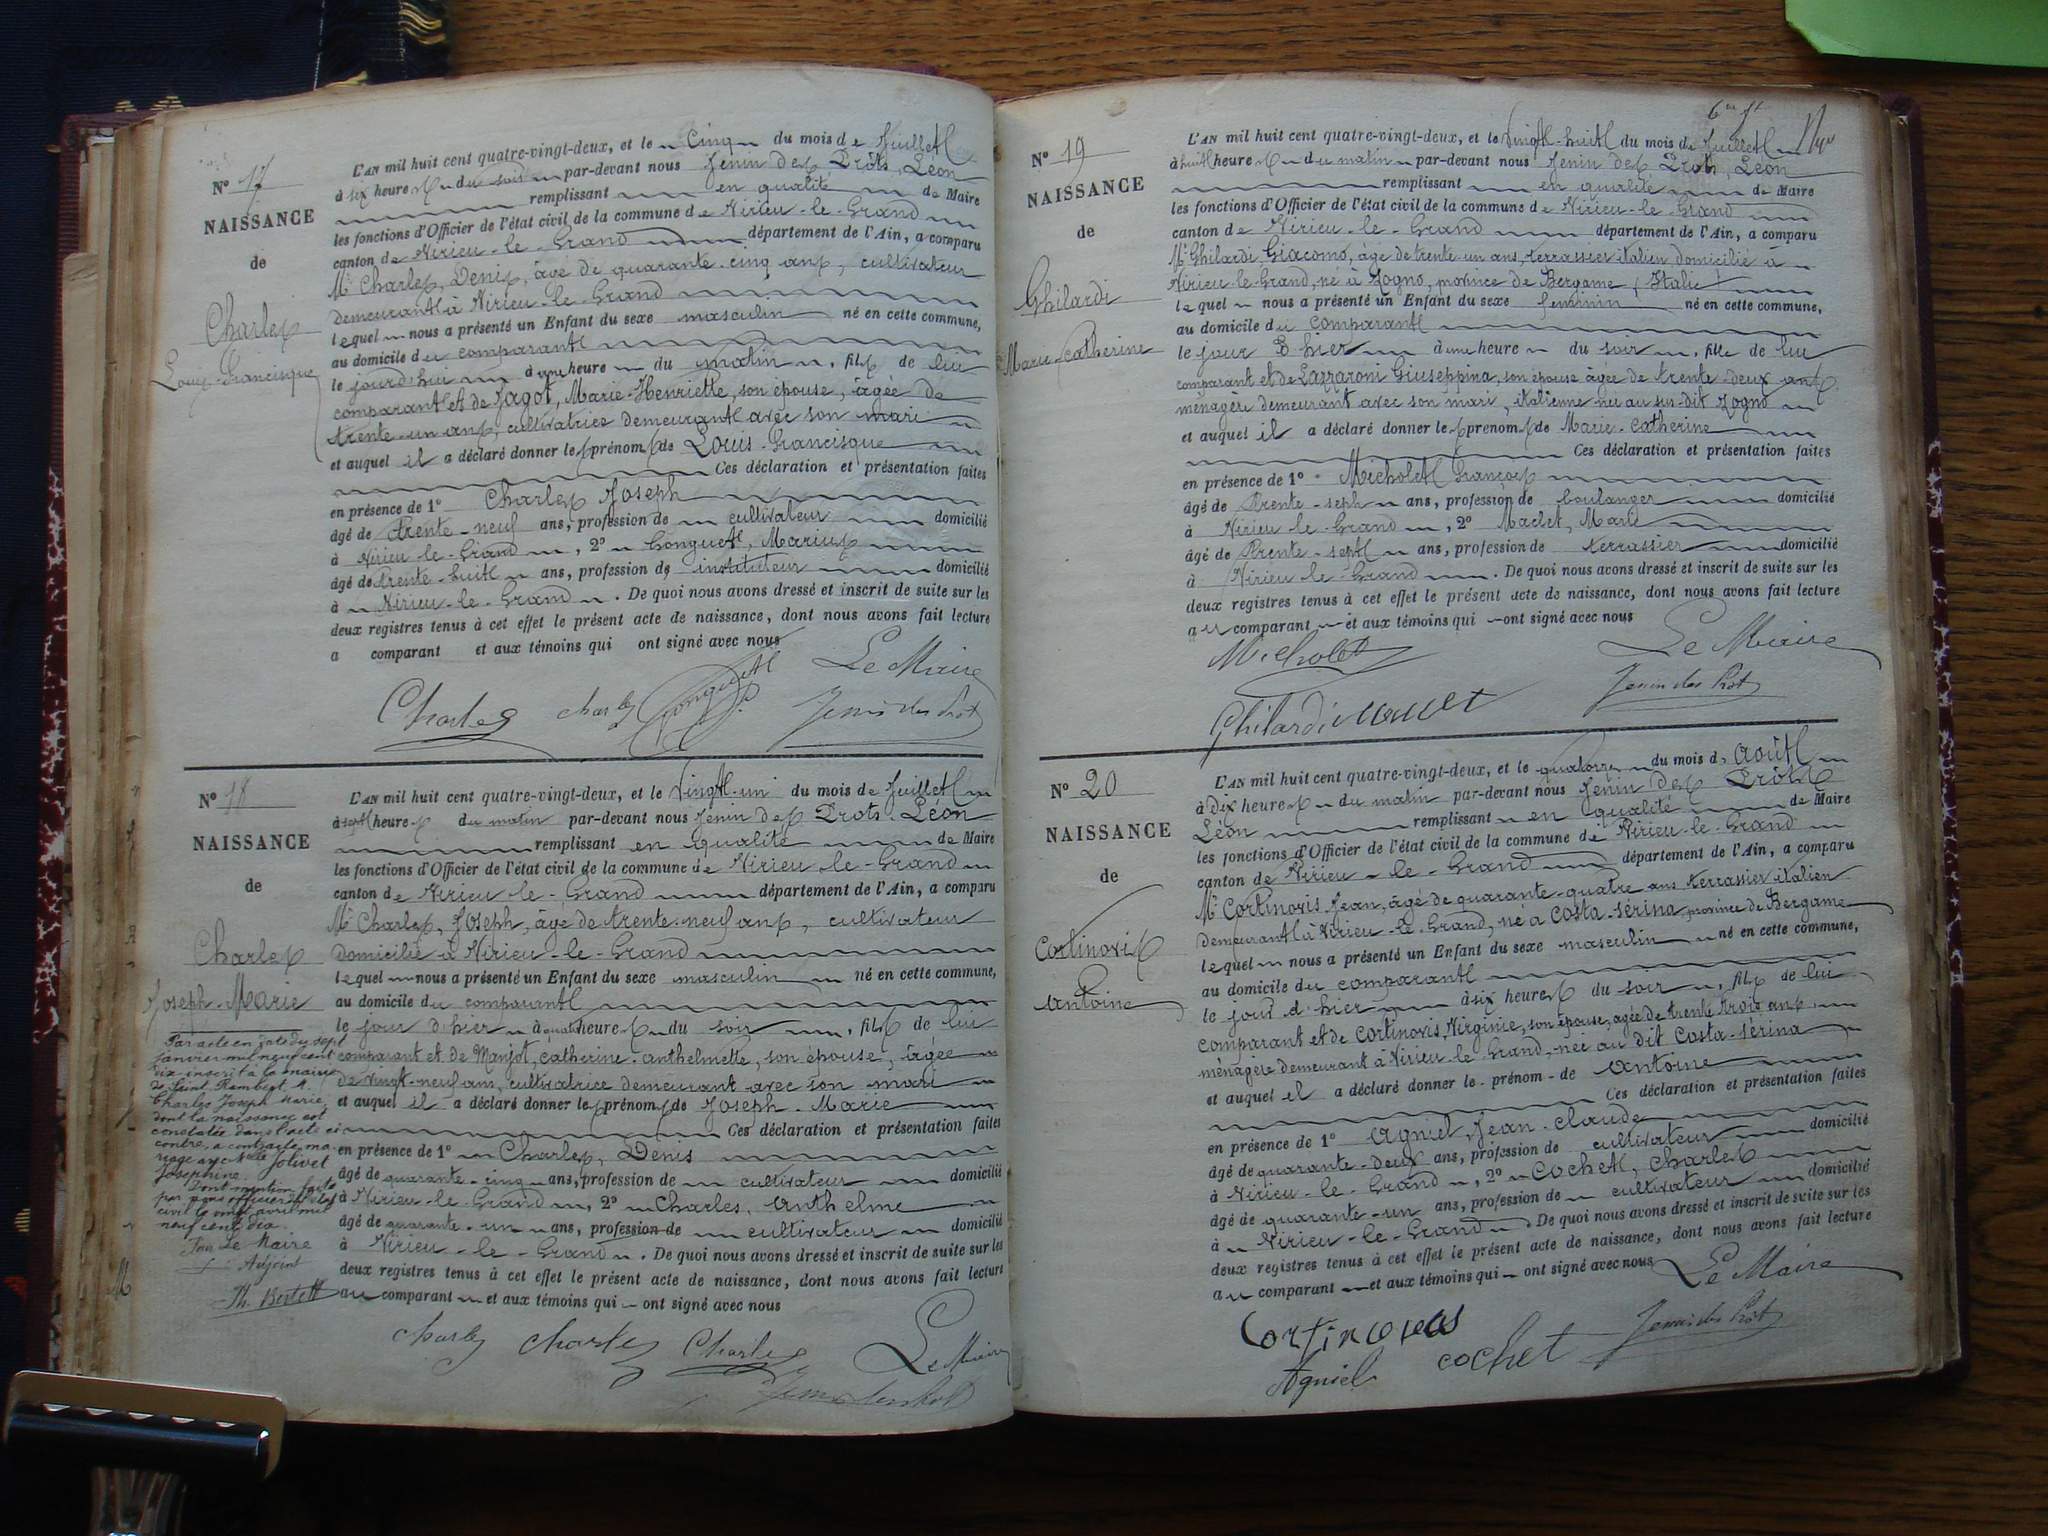 N° 17
NAISSANCE
de
Charles
Louis-Francisque
L'AN mil huit cent quatre-vingt-deux, et le cinq du mois de Juillet
à six heures du soir par-devant nous Jenin des Prots, Léon
remplissant en qualité de Maire
les fonctions d'Officier de l'état civil de la commune de Virieu-le-Grand
canton de Virieu-le-Grand département de l'Ain, a comparu
Mr Charles, Denis, âgé de quarante-cinq ans, cultivateur
demeurant à Virieu-le-Grand
lequel nous a présenté un Enfant du sexe masculin né en cette commune,
au domicile du comparant
le jourd'hui à une heure du matin, fils de lui
comparant et de Jagot, Marie-Henriette, son épouse, âgée de
trente-un ans, cultivatrice demeurant avec son mari
et auquel il a déclaré donner les prénoms de Louis-Francisque
Ces déclaration et présentation faites
en présence de 1° Charles Joseph
âgé de trente-neuf ans, profession de cultivateur domicilié
à Virieu-le-Grand, 2° Gonguet, Marius
âgé de trente-huit ans, profession de instituteur domicilié
à Virieu-le-Grand. De quoi nous avons dressé et inscrit de suite sur les
deux registres tenus à cet effet le présent acte de naissance, dont nous avons fait lecture
a comparant et aux témoins qui ont signé avec nous
Le Maire
Charles charles Gonguet Jenin des Prots
N° 18
NAISSANCE
de
Charles
Joseph-Marie
Par acte en date du sept
janvier mil neuf cent
dix inscrit à la mairie
de Saint Rambert, M.
Charles Joseph Marie,
dont la naissance est
constatée dans l'acte ci
contre, a contracté ma-
riage avec Melle Jolivet
Joséphine.
Dont mention faite
par nous officier de l'état
civil le vingt avril mil
neuf cent dix.
Pour Le Maire
Adjoint
Th. Bertett
L'AN mil huit cent quatre-vingt-deux, et le vingt-un du mois de Juillet
à sept heures du matin par-devant nous Jenin des Prots, Léon
remplissant en qualité de Maire
les fonctions d'Officier de l'état civil de la commune de Virieu-le-Grand
canton de Virieu-le-Grand département de l'Ain, a comparu
Mr Charles, Joseph, âgé de trente-neuf ans, cultivateur
domicilié à Virieu-le-Grand
lequel nous a présenté un Enfant du sexe masculin né en cette commune,
au domicile du comparant
le jour d'hier à quatre heures du soir, fils de lui
comparant et de Manjot, Catherine-Anthelmette, son épouse, âgée
de vingt-neuf ans, cultivatrice demeurant avec son mari
et auquel il a déclaré donner les prénoms de Joseph-Marie
Ces déclaration et présentation faites
en présence de 1° Charles, Denis
âgé de quarante-cinq ans, profession de cultivateur domicilié
à Virieu-le-Grand, 2° Charles, Anthelme
âgé de quarante-un ans, profession de cultivateur domicilié
à Virieu-le-Grand. De quoi nous avons dressé et inscrit de suite sur les
deux registres tenus à cet effet le présent acte de naissance, dont nous avons fait lecture
au comparant et aux témoins qui ont signé avec nous
charles charles Charles Le Maire
Jenin des Prots
N° 19
NAISSANCE
de
Ghilardi
Marie-Catherine
L'AN mil huit cent quatre-vingt-deux, et le vingt-huit du mois de Juillet
à huit heures du matin par-devant nous Jenin des Prots, Léon
remplissant en qualité de Maire
les fonctions d'Officier de l'état civil de la commune de Virieu-le-Grand
canton de Virieu-le-Grand département de l'Ain, a comparu
Mr Ghilardi, Giacomo, âgé de trente-un ans, terrassier italien, domicilié à
Virieu-le-Grand, né à Zogno, province de Bergame (Italie)
lequel nous a présenté un Enfant du sexe feminin né en cette commune,
au domicile du comparant
le jour d'hier à une heure du soir, fille de lui
comparant et de Lazzaroni Giuseppina, son épouse âgée de trente-deux ans,
ménagère demeurant avec son mari, italienne née au sus-dit Zogno
et auquel il a déclaré donner les prénoms de Marie-Catherine
Ces déclaration et présentation faites
en présence de 1° Micholet François
âgé de trente-sept ans, profession de boulanger domicilié
à Virieu-le-Grand, 2° Maclet, Marie
âgé de trente-sept ans, profession de terrassier domicilié
à Virieu-le-Grand. De quoi nous avons dressé et inscrit de suite sur les
deux registres tenus à cet effet le présent acte de naissance, dont nous avons fait lecture
au comparant et aux témoins qui ont signé avec nous
Micholet Le Maire
Ghilardi Jenin des Prots
N° 20
NAISSANCE
de
Cortinovis
Antoine
L'AN mil huit cent quatre-vingt-deux, et le quatorze du mois d'Août
à dix heures du matin par-devant nous Jenin des Prots
Léon remplissant en qualité de Maire
les fonctions d'Officier de l'état civil de la commune de Virieu-le-Grand
canton de Virieu-le-Grand département de l'Ain, a comparu
Mr Cortinovis Jean, âgé de quarante-quatre ans terrassier italien
demeurant à Virieu-le-Grand, né à Costa-Sérina, province de Bergame
lequel nous a présenté un Enfant du sexe masculin né en cette commune,
au domicile du comparant
le jour d'hier à six heures du soir, fils de lui
comparant et de Cortinovis, Virginie, son épouse, âgée de trente trois ans,
ménagère demeurant à Virieu-le-Grand, née au dit Costa-Sérina
et auquel il a déclaré donner le prénom de Antoine
Ces déclaration et présentation faites
en présence de 1° Agniel, Jean-Claude
âgé de quarante-deux ans, profession de cultivateur domicilié
à Virieu-le-Grand, 2° Cochet, Charles
âgé de quarante-un ans, profession de cultivateur domicilié
à Virieu-le-Grand. De quoi nous avons dressé et inscrit de suite sur les
deux registres tenus à cet effet le présent acte de naissance, dont nous avons fait lecture
au comparant et aux témoins qui ont signé avec nous
Le Maire
Cortinovis Jenin des Prots
Agniel cochet